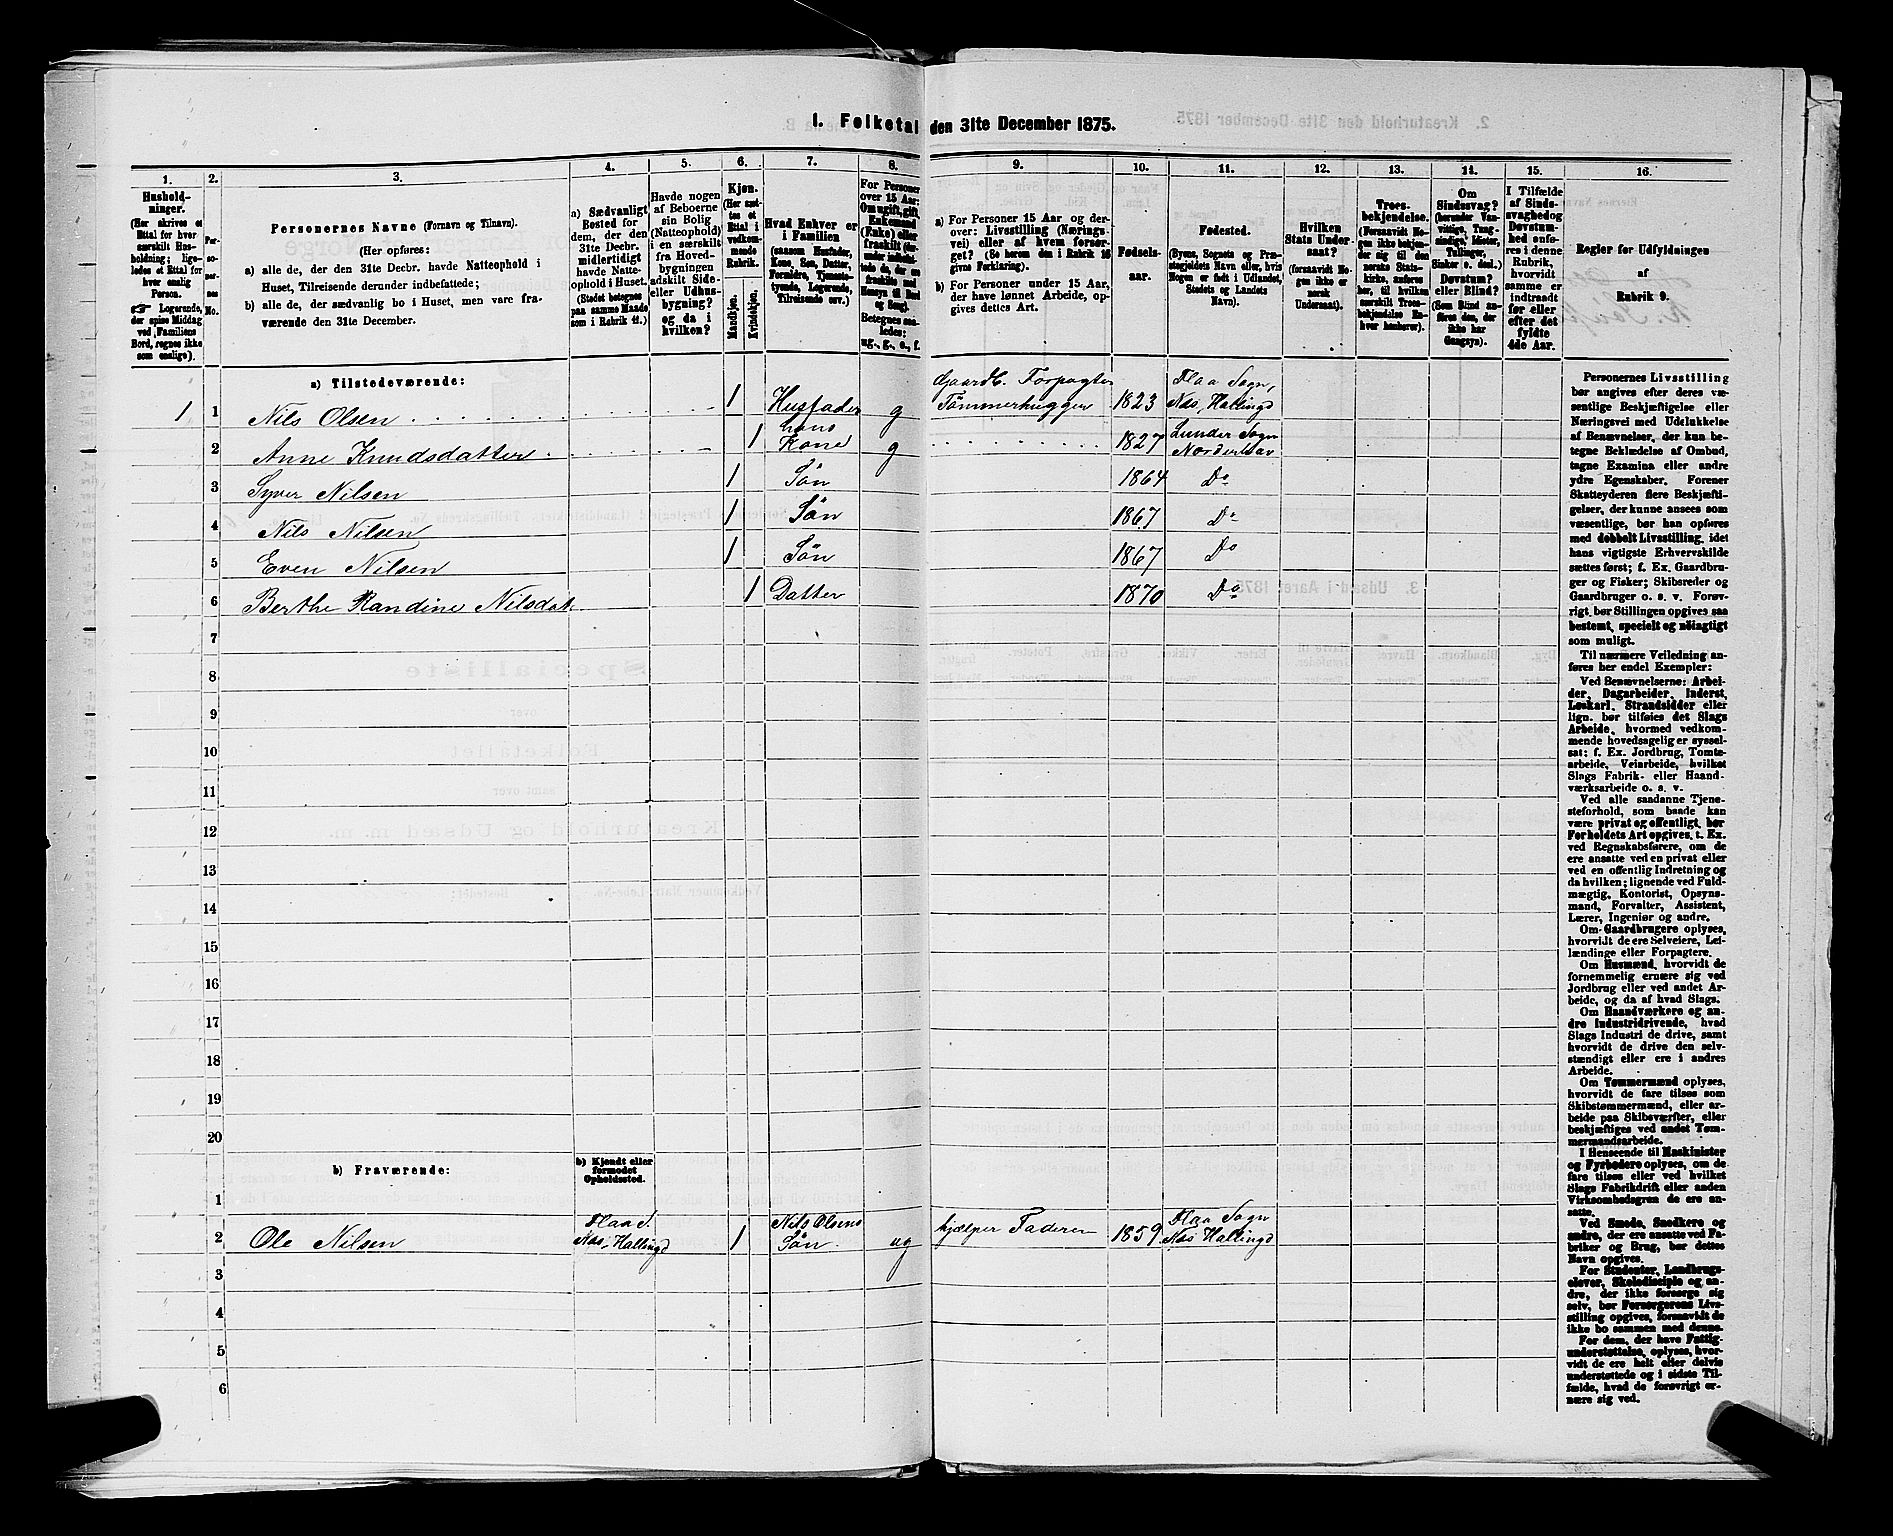 1. Folketal den 31te December 1875.
1. 2. 3. 4. 5. 6. 7. 8. 9. 10. 11. 12. 13. 14. 15. 16.
Hushold-
ninger.
(Her skrives et
Ettal for hver
særskilt Hus-
holdning; lige-
ledes et Ettal for
hver enslig
Person.
☞ Logerende,
der spise Middag
ved Familiens
Bord, regnes ikke
som enslige).
Per-
so-
ner-
nes
No.
Personernes Navne (Fornavn og Tilnavn).
(Her opføres:
a) alle de, der den 31te Decbr. havde Natteophold i
Huset, Tilreisende derunder indbefattede;
b) alle de, der sædvanlig bo i Huset, men vare fra-
værende den 31te December.
a) Sædvanligt
Bosted for
dem, der den
31te Decbr.
midlertidigt
havde Natte-
ophold i Huset.
(Stedet betegnes
paa samme Maade
som i Rubrik 11.)
Havde nogen
af Beboerne
sin Bolig
(Natteophold)
i en særskilt
fra Hoved-
bygningen
adskilt Side-
eller Udhus-
bygning?
og da i
hvilken?
Kjøn.
(Her sæt-
tes et
Ettal i
vedkom-
mende
Rubrik.
Mandkjøn.
Kvindekjøn.
Hvad Enhver er
i Familien
(saasom Husfader,
Kone, Søn, Datter,
Forældre, Tjeneste-
tyende, Logerende,
Tilreisende osv.)
For Personer
over 15 Aar:
Om ugift, gift,
Enkemand
(Enke) eller
fraskilt
Betegnes saa-
ledes:
ug., g., e., f.
a) For Personer 15 Aar og der-
over: Livsstilling (Nærings-
vei) eller af hvem forsør-
get? (Se herom den i Rubrik 16
givne Forklaring).
b) For Personer under 15 Aar,
der have lønnet Arbeide, op-
gives dettes Art.
Fødsels-
aar.
Fødested.
(Byens, Sognets og Præ-
stegjeldets Navn eller, hvis
Nogen er født i Udlandet,
Stedets og Landets
Navn).
Hvilken
Stats Under-
saat?
(forsaavidt No-
gen ikke er
norsk
Undersaat).
Troes-
bekjendelse.
(Forsaavidt No-
gen ikke bekjen-
der sig til den
norske Stats-
kirke, anføres
her, til hvilken
særskilt Troes-
bekjendelse En-
hver henhører).
Om
Sindssvag?
(herunder Van-
vittige, Tung-
sindige, Idioter,
Tullinger,
Sinker o. desl.)
Døvstum?
eller Blind?
(Som Blind an-
føres den, der
ikke har
Gangsyn).
I Tilfælde
af Sinds-
svaghed og
Døvstum-
hed anfø-
res i denne
Rubrik,
hvorvidt
samme er
indtraadt
før eller
efter det
fyldte
4de Aar.
Regler for Udfyldningen
af
Rubrik 9.
a) Tilstedeværende:
1 1 Nils Olsen 1 Husfader g Gaardb. Forpagter Tømmerhugger 1823 Flaa Sogn, Næs, Hallingd
2 Anne Knudsdatter 1 hans Kone g 1827 Lunder Sogn Norderhov
3 Syver Nilsen 1 Søn 1864 Do
4 Nils Nilsen 1 Søn 1867 Do
5 Even Nilsen 1 Søn 1867 Do
6 Berthe Randine Nilsdatt 1 Datter 1870 Do
7
8
9
10
11
12
13
14
15
16
17
18
19
20
b) Fraværende:
b) Kjendt eller
formodet
Opholdssted.
1
2 Ole Nilsen Flaa S. Næs, Hallingd 1 Nils Olsens Søn ug hjælper Faderen 1859 Flaa Sogn Næs Hallingd
3
4
5
6
Personernes Livsstilling
bør angives efter deres væ-
sentlige Beskjæftigelse eller
Næringsvei med Udelukkelse
af Benævnelser, der kun be-
tegne Beklædelse af Ombud,
tagne Examina eller andre
ydre Egenskaber. Forener
Skatteyderen flere Beskjæfti-
gelser, der kunne ansees som
væsentlige, bør han opføres
med dobbelt Livsstilling, idet
hans vigtigste Erhvervskilde
sættes først; f. Ex. Gaardbru-
ger og Fisker; Skibsreder og
Gaardbruger o. s. v. Forøv-
rigt bør Stillingen opgives saa
bestemt, specielt og nøiagtigt
som muligt.
Til nærmere Veiledning an-
føres her endel Exempler:
Ved Benævnelserne: Arbei-
der, Dagarbeider, Inderst,
Løskarl, Strandsidder eller
lign. bør tilføies det Slags
Arbeide, hvormed vedkom-
mende hovedsagelig er syssel-
sat; f. Ex. Jordbrug, Tomte-
arbeide, Veiarbeide, hvilket
Slags Fabrik- eller Haand-
værksarbeide o. s. v.
Ved alle saadanne Tjene-
steforhold, som baade kan
være privat og offentligt, bør
Forholdets Art opgives, t. Ex.
ved Regnskabsførere, om de
ere ansatte ved en privat eller
ved en offentlig Indretning og
da hvilken; lignende ved Fuld-
mægtig, Kontorist, Opsyns-
mand, Forvalter, Assistent,
Lærer, Ingeniør og andre.
Om Gaardbrugere oplyses,
hvorvidt de ere Selveiere, Lei-
lændinge eller Forpagtere.
Om Husmænd, hvorvidt de
fornemmelig ernære sig ved
Jordbrug eller ved andet Ar-
beide, og da af hvad Slags.
Om Haandværkere og an-
dre Industridrivende, hvad
Slags Industri de drive, samt
hvorvidt de drive den selv-
stændigt eller ere i andres
Arbeide.
Om Tømmermænd oplyses,
hvorvidt de fare tilsøs som
Skibstømmermænd, eller ar-
beide paa Skibsværfter, eller
beskjæftiges ved andet Tøm-
mermandsarbeide.
I Henseende til Maskinister
og Fyrbødere oplyses, om de
fare tilsøs eller ved hvilket
Slags Fabrikdrift eller anden
Virksomhedsgren de ere an-
satte.
Ved Smede, Snedkere og
andre, der ere ansatte ved Fa-
briker og Brug, bør dettes
Navn opgives.
For Studenter, Landbrugs-
elever, Skoledisciple og an-
dre, der ikke forsørge sig
selv, bør Forsørgerens Livs-
stilling opgives, forsaavidt de
ikke bo sammen med denne.
For dem, der have Fattig-
understøttelse, oplyses, hvor-
vidt de ere helt eller delvis
understøttede og i sidste Til-
fælde, hvad de forøvrigt er-
nære sig ved.